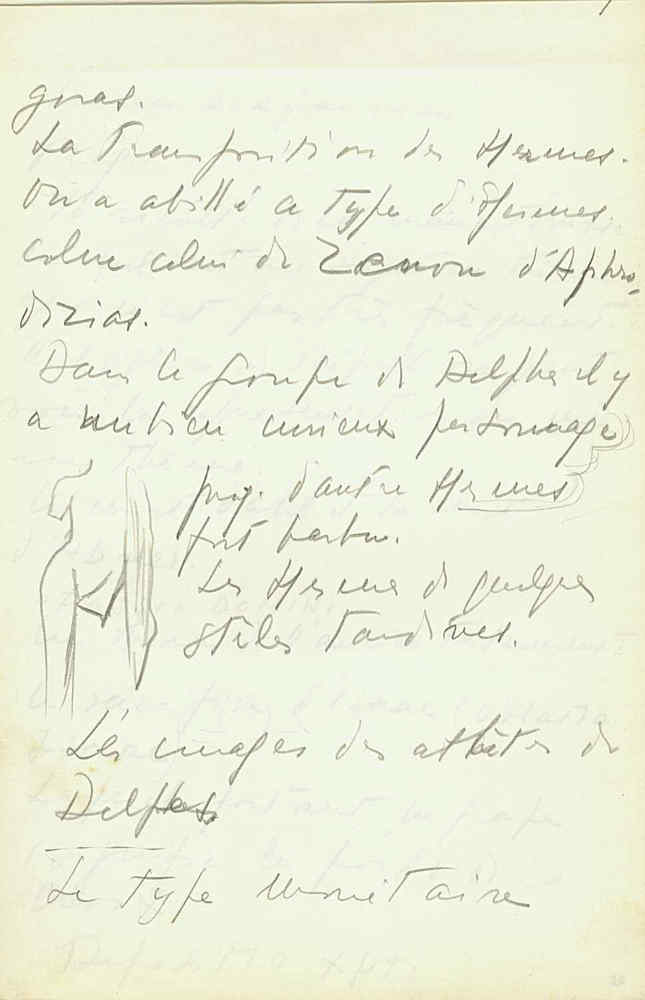 goras.
La Transposition des Hermes.
On a abillé ce type d'Hermes.
celui de Zenon d'Aphro-
dizias.
Dans le groupe de Delphes il y
a un bien curieux personnage
d'autre Hermes
fort barbu.
Les Hermes de quelques
stèles tardives.
Les images des athlètes de
Delphes.
Le type monétaire